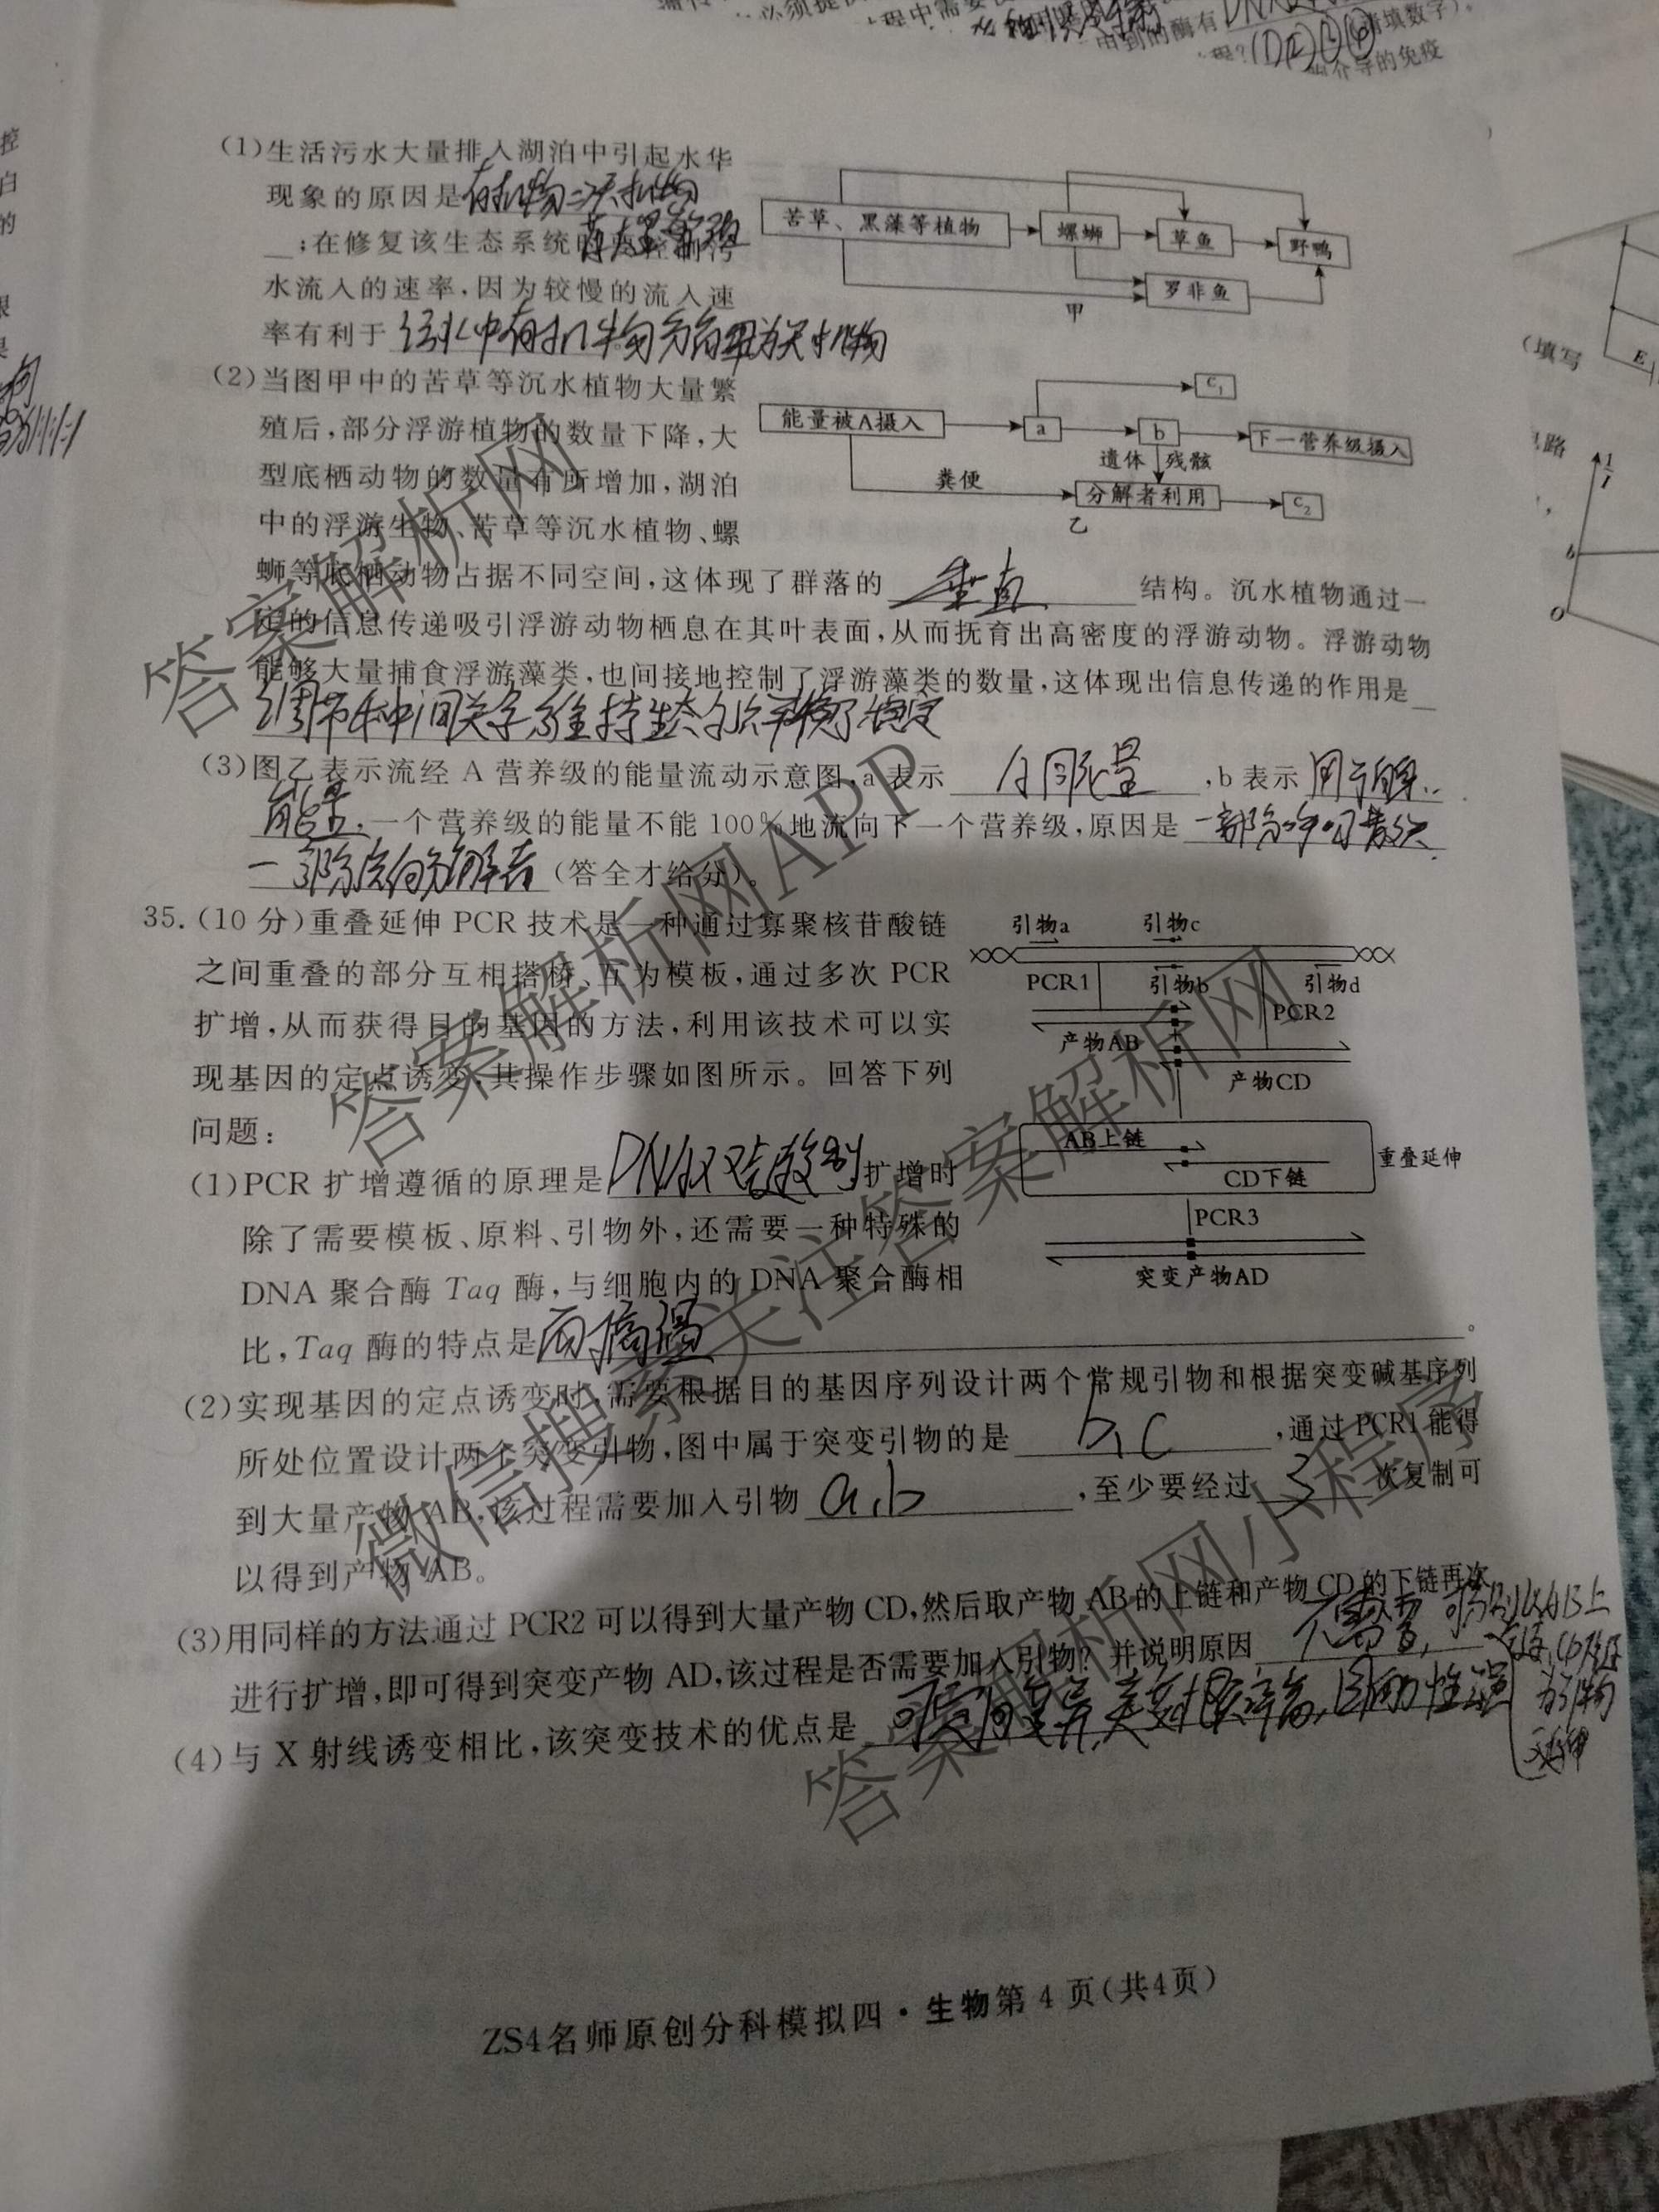 (1)生活污水大量排入湖泊中引起水华
现象的原因是
;在修复该生态系统
水流入的速率,因为较慢的流入速
率有利于
苦草、黑藻等植物
螺蛳
草鱼
野鸭
罗非鱼
甲
(2)当图甲中的苦草等沉水植物大量繁
殖后,部分浮游植物的数量下降,大
型底栖动物的数量有所增加,湖泊
中的浮游生物、苦草等沉水植物、螺
蛳等底栖动物占据不同空间,这体现了群落的 垂直 结构。沉水植物通过一
定的信息传递吸引浮游动物栖息在其叶表面,从而抚育出高密度的浮游动物。浮游动物
能够大量捕食浮游藻类,也间接地控制了浮游藻类的数量,这体现出信息传递的作用是
调节种间关系维持生态
能量被A摄入
a
b
c₁
下一营养级摄入
遗体 残骸
粪便
分解者利用
c₂
乙
(3)图乙表示流经 A 营养级的能量流动示意图,a 表示 同化量 ,b 表示 用于
能量,一个营养级的能量不能 100%地流向下一个营养级,原因是 一部分
一部分流向分解者 (答全才给分)。
35.(10 分)重叠延伸 PCR 技术是一种通过寡聚核苷酸链
之间重叠的部分互相搭桥、互为模板,通过多次 PCR
扩增,从而获得目的基因的方法,利用该技术可以实
现基因的定点诱变,其操作步骤如图所示。回答下列
问题:
引物a
引物c
PCR1
引物b
引物d
PCR2
产物AB
产物CD
AB上链
CD下链
重叠延伸
PCR3
突变产物AD
(1)PCR 扩增遵循的原理是 DNA双链复制 扩增时
除了需要模板、原料、引物外,还需要一种特殊的
DNA 聚合酶 Taq 酶,与细胞内的 DNA 聚合酶相
比,Taq 酶的特点是 耐高温 。
(2)实现基因的定点诱变时,需要根据目的基因序列设计两个常规引物和根据突变碱基序列
所处位置设计两个突变引物,图中属于突变引物的是 b,c ,通过 PCR1能得
到大量产物 AB,该过程需要加入引物 a,b ,至少要经过 3 次复制可
以得到产物 AB。
(3)用同样的方法通过 PCR2 可以得到大量产物 CD,然后取产物 AB的上链和产物 CD 的下链再次
进行扩增,即可得到突变产物 AD,该过程是否需要加入引物? 并说明原因 不需要,
为引物
延伸
(4)与 X 射线诱变相比,该突变技术的优点是
ZS4名师原创分科模拟四·生物第 4 页(共4页)
答案解析网
答案解析网APP
微信搜索关注答案解析网
答案解析网小程序
(填写